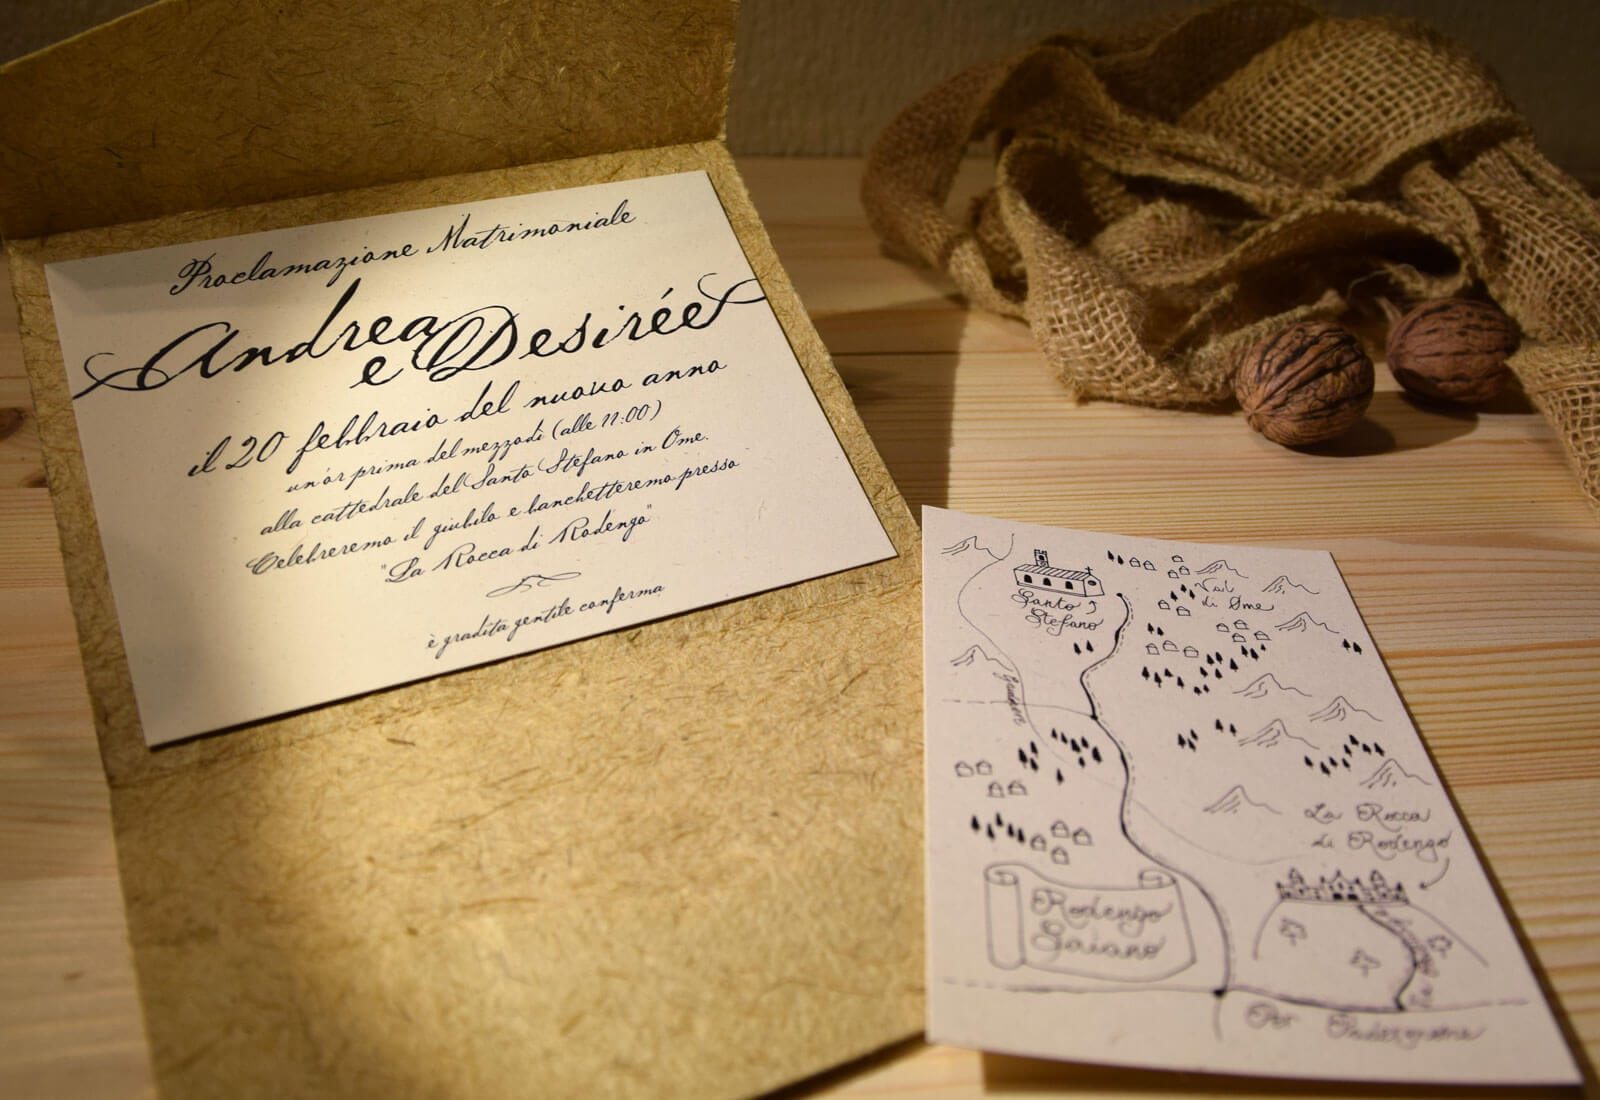 Proclamazione Matrimoniale
Andrea
e Desirée
il 20 febbraio del nuovo anno
un'or prima del mezzodì (alle 11:00)
alla cattedrale del Santo Stefano in Ome.
Celebreremo il giubilo e banchetteremo presso
"La Rocca di Rodengo"
è gradita gentile conferma
Santo
Stefano
Val
di Ome
La Rocca
di Rodengo
Rodengo
Saiano
Per